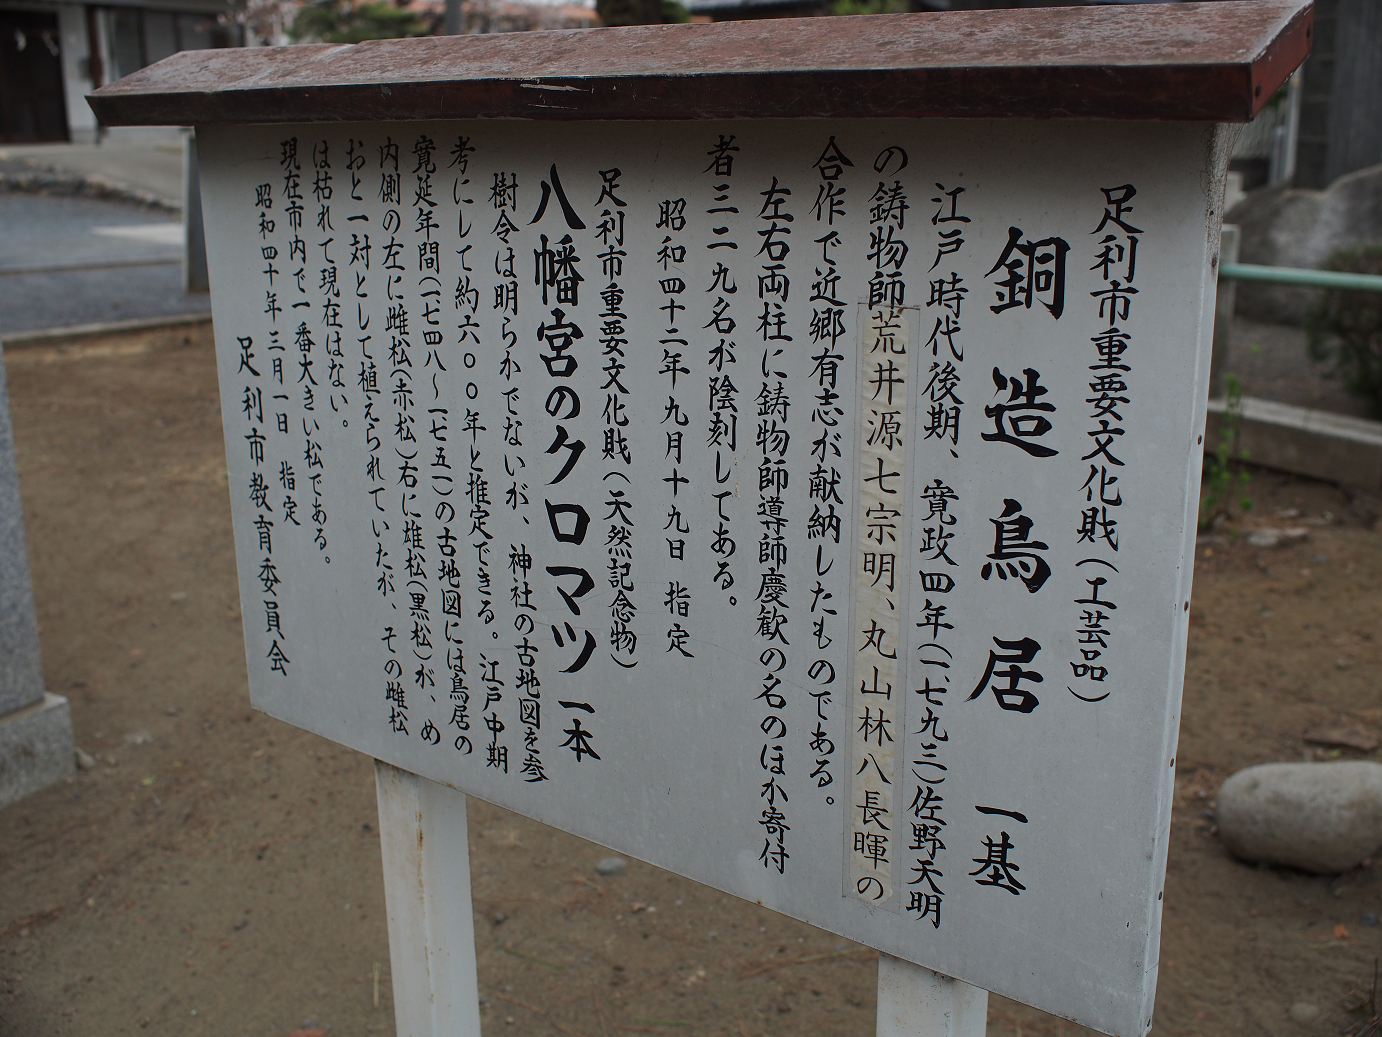 足利市重要文化財(工芸品)
銅造鳥居 一基
江戸時代後期、寛政四年(一七九三)佐野天明
の鋳物師荒井源七宗明、丸山林八長暉の
合作で近郷有志が献納したものである。
左右両柱に鋳物師導師慶歓の名のほか寄付
者三二九名が陰刻してある。
昭和四十二年九月十九日 指定
足利市重要文化財(天然記念物)
八幡宮のクロマツ 一本
樹令は明らかでないが、神社の古地図を参
考にして約六〇〇年と推定できる。江戸中期
寛延年間(一七四八〜一七五一)の古地図には鳥居の
内側の左に雌松(赤松)右に雄松(黒松)が、め
おと一対として植えられていたが、その雌松
は枯れて現在はない。
現在市内で一番大きい松である。
昭和四十年三月一日 指定
足利市教育委員会